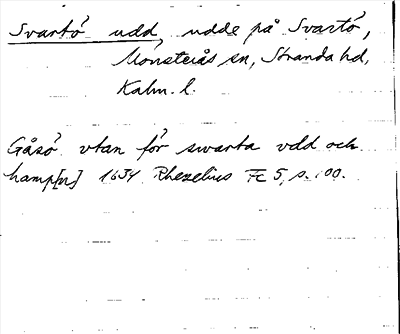 Svartö udd, udde på Svartö,
Mönsterås sn, Stranda hd,
Kalm. l.
Gåsö utan för swarta vdd och
hamp[n] 1634 Rhezelius Fc 5, s. 100.